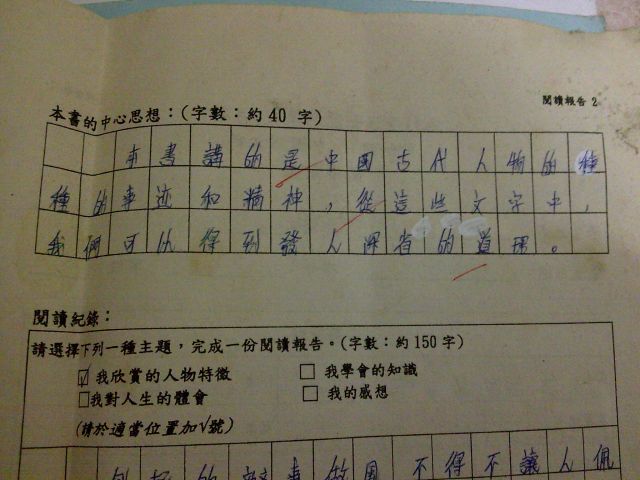 閱讀報告 2
本書的中心思想：(字數：約40 字)
本書講的是中國古代人物的種
種的事迹和精神，從這些文字中，
我們可以得到發人深省的道理。
閱讀紀錄：
請選擇下列一種主題，完成一份閱讀報告。(字數：約150字)
☑ 我欣賞的人物特徵 □ 我學會的知識
□我對人生的體會 □ 我的感想
(請於適當位置加√號)
的 事做 不得不讓人佩